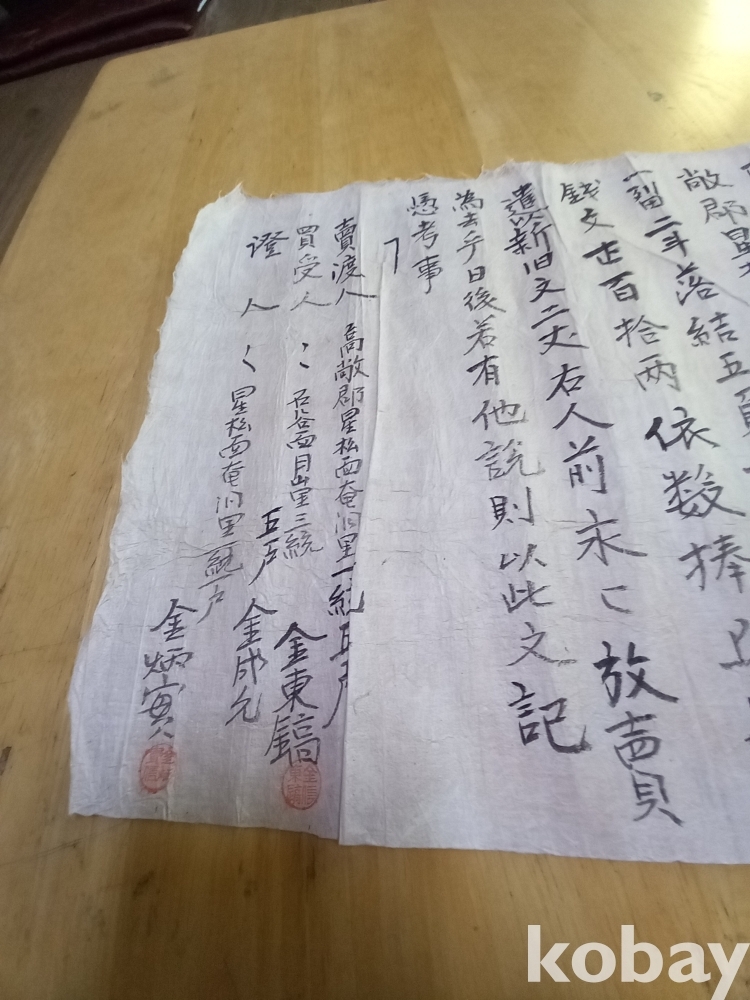 敞郡星
留二斗落結五
錢文 百拾兩依数捧
遣以新旧文二丈右人前永〻放賣
為去乎日後若有他說則以此文記
憑考事
賣渡人 高敞郡星松面奄洞里一統五戶 金東鎬
買受人〻 石谷面月山里三統五戶 金成允
證人〻 星松面奄洞里一統一戶 金炳寅
kobay